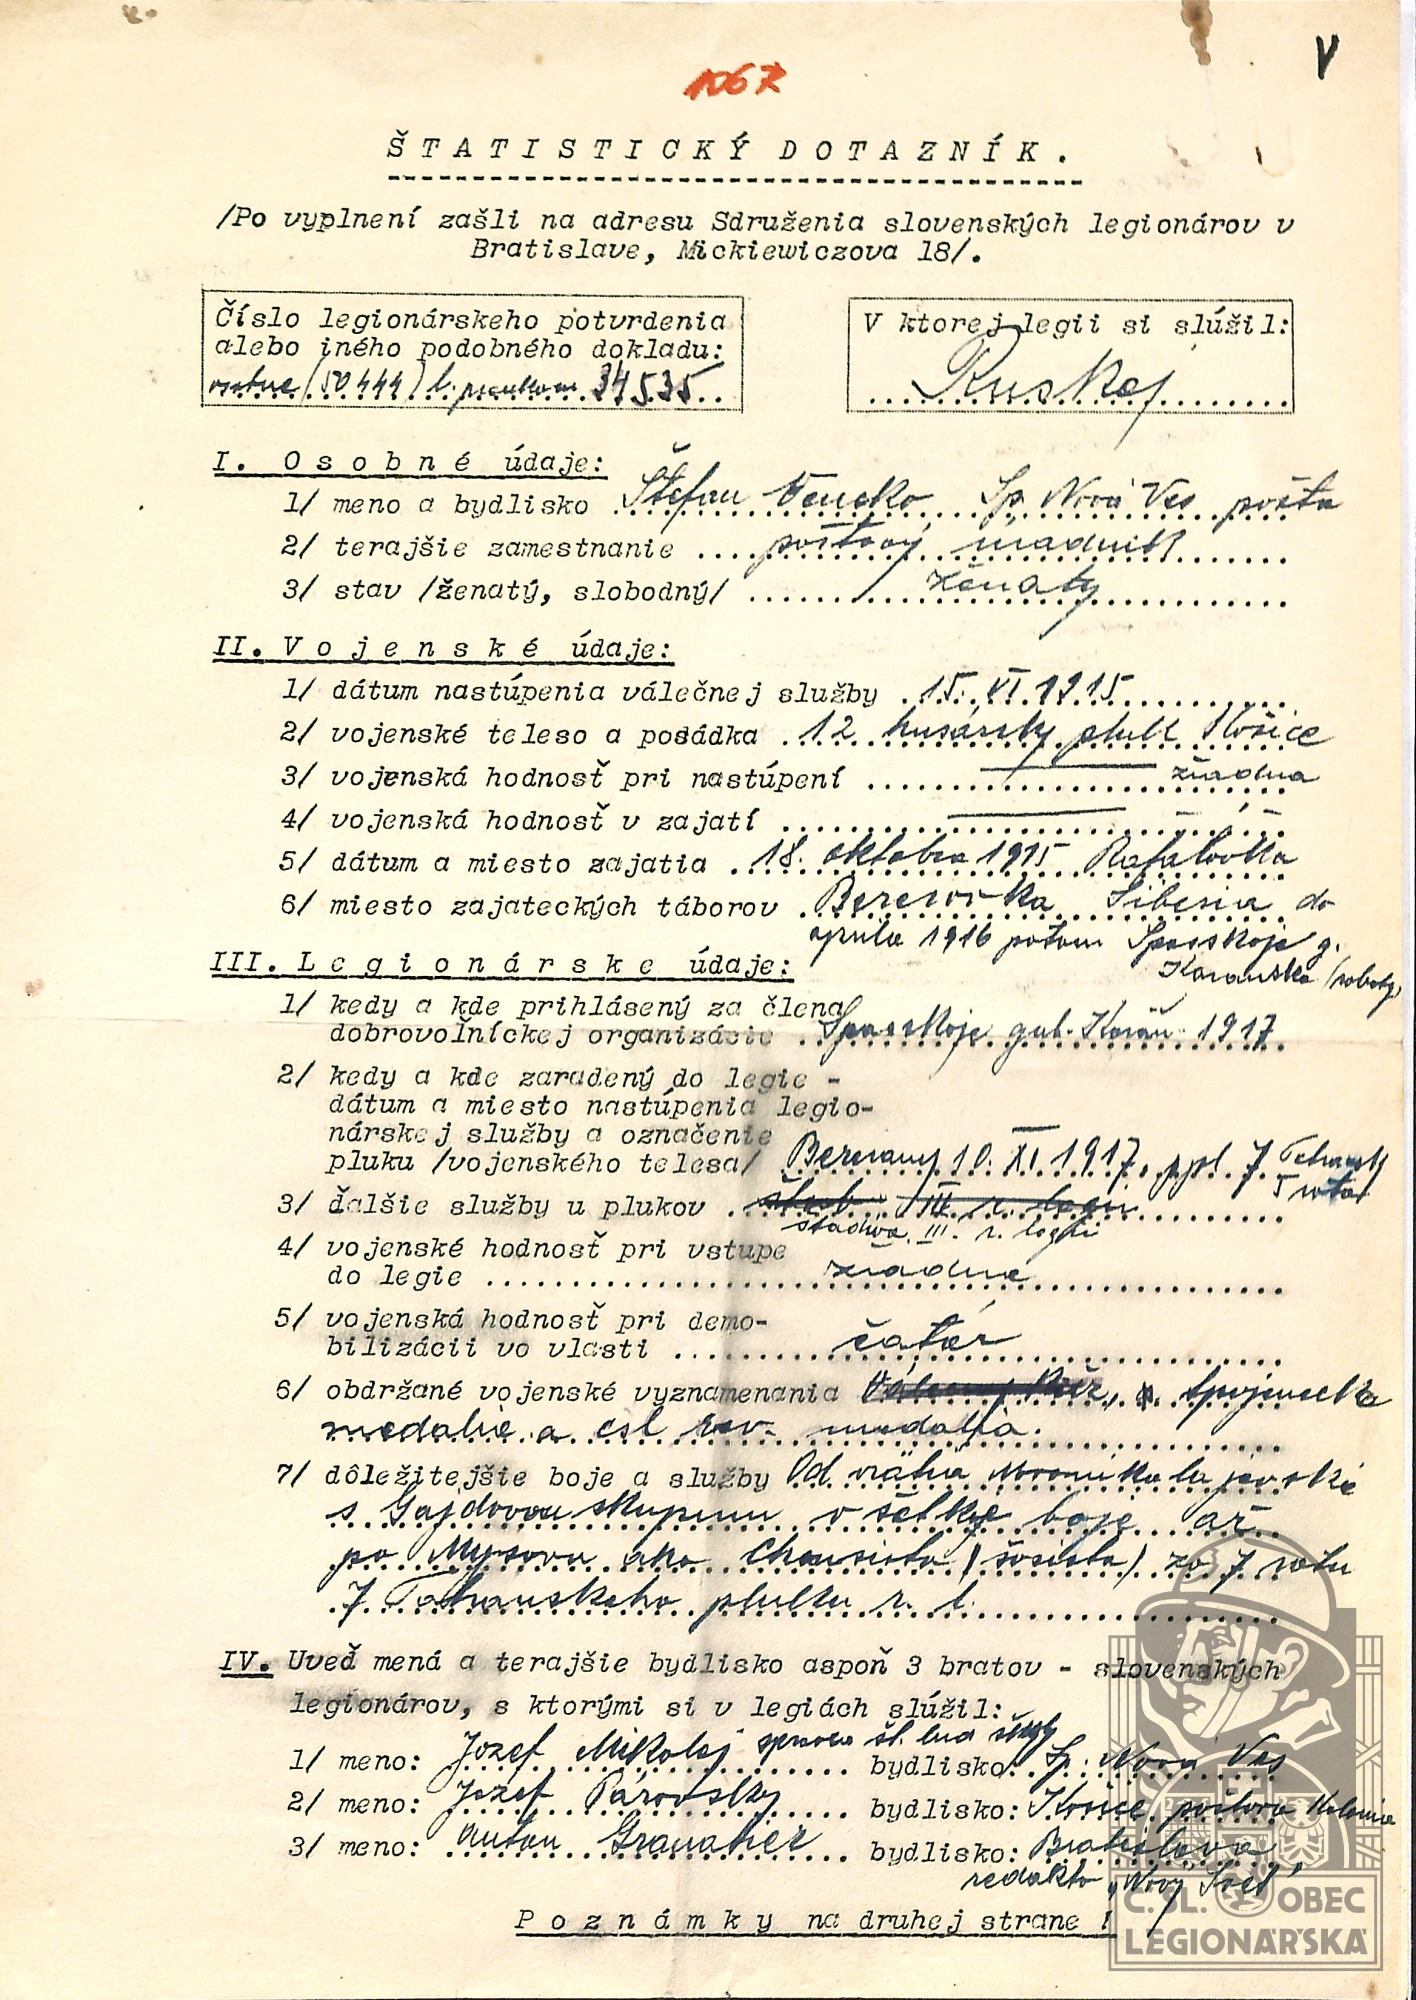 1067
V
ŠTATISTICKÝ DOTAZNÍK.
/Po vyplnení zašli na adresu Sdruženia slovenských legionárov v
Bratislave, Mickiewiczova 18/.
Číslo legionárskeho potvrdenia
alebo iného podobného dokladu:
(50444) 34535
V ktorej legii si slúžil:
Ruskej
I. Osobné údaje:
1/ meno a bydlisko Štefan Vencko Sp. Nová Ves pošta
2/ terajšie zamestnanie poštový úradník
3/ stav /ženatý, slobodný/ ženatý
II. Vojenské údaje:
1/ dátum nastúpenia válečnej služby 15. VI. 1915
2/ vojenské teleso a posádka 12 husársky pluk Košice
3/ vojenská hodnosť pri nastúpení žiadna
4/ vojenská hodnosť v zajatí
5/ dátum a miesto zajatia 18. oktobra 1915 Rafalovka
6/ miesto zajateckých táborov Beresovka Siberia do
aprila 1916 potom Spasskoje g.
Kazanska (roboty)
III. Legionárske údaje:
1/ kedy a kde prihlásený za člena
dobrovoľníckej organizácie Spasskoje gub. Kazáň 1917
2/ kedy a kde zaradený do legie -
dátum a miesto nastúpenia legio-
nárskej služby a označenie
pluku /vojenského telesa/ Berezany 10. XI. 1917. 7 Tatranský
5 rota
3/ ďalšie služby u plukov štab III r. legii
III. r. legii
4/ vojenské hodnosť pri vstupe
do legie žiadne
5/ vojenská hodnosť pri demo-
bilizácii vo vlasti čatár
6/ obdržané vojenské vyznamenania Spojenecka
medalie a csl rev. medalia.
7/ dôležitejšie boje a služby Od vzätia Novonikolajevska
s Gajdovou skupinu všetkye boje až
po Mysovu ako zo 7 rotu
7 Tatranskeho pluku r. l.
IV. Uveď mená a terajšie bydlisko aspoň 3 bratov - slovenských
legionárov, s ktorými si v legiách slúžil:
1/ meno: Jozef Mikolaj správca št. lud školy bydlisko: Sp. Nová Ves
2/ meno: Jozef Párovský bydlisko: Košice poštova Kolonia
3/ meno: Anton Granatier bydlisko: Bratislava
redakto „Nový Svet"
Poznámky na druhej strane !
Č. SL. OBEC
LEGIONÁŘSKÁ